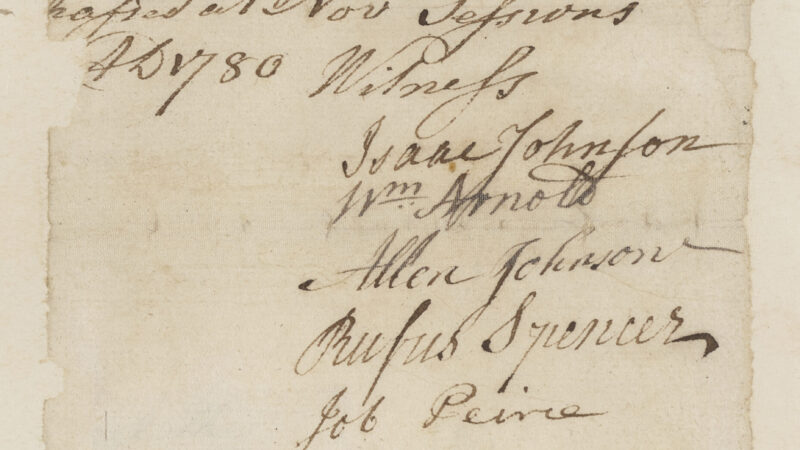 passed at Nov Sessions
AD 1780 Witness
Isaac Johnson
Wm Arnold
Allen Johnson
Rufus Spencer
Job Peirce